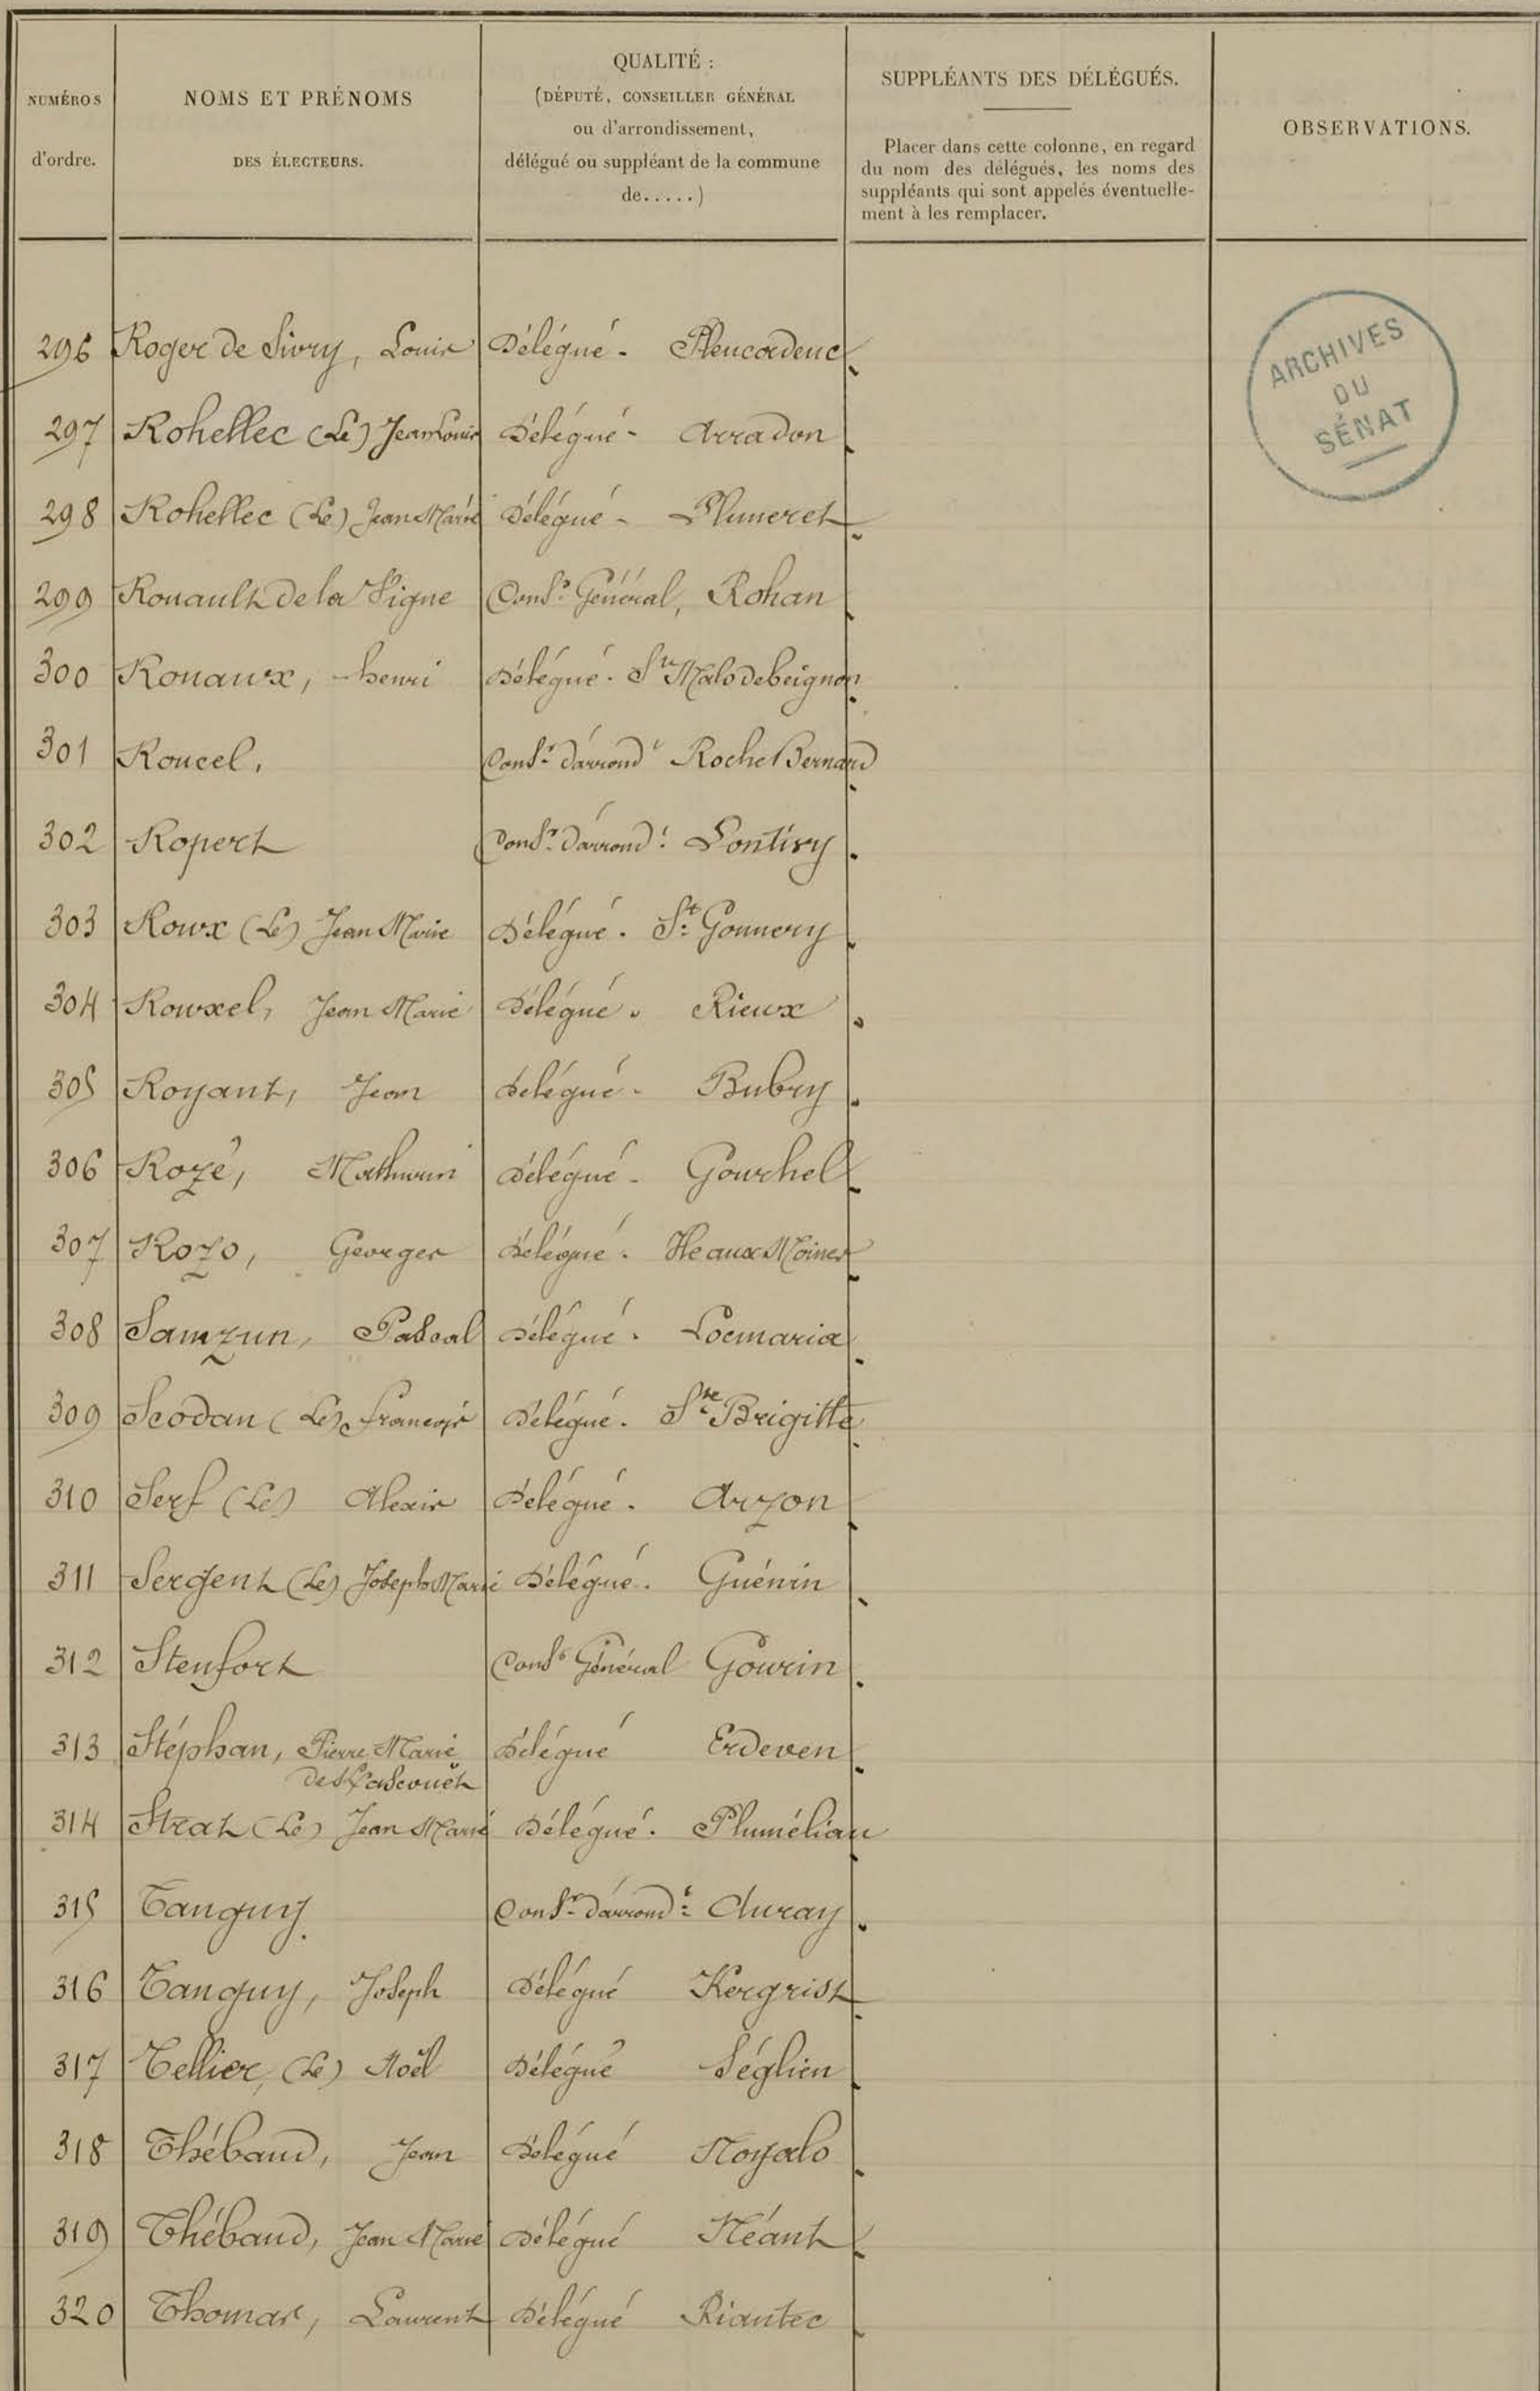 NUMÉROS
d'ordre.
NOMS ET PRÉNOMS
DES ÉLECTEURS.
QUALITÉ :
(DÉPUTÉ, CONSEILLER GÉNÉRAL
ou d'arrondissement,
délégué ou suppléant de la commune
de.....)
SUPPLÉANTS DES DÉLÉGUÉS.
Placer dans cette colonne, en regard
du nom des délégués, les noms des
suppléants qui sont appelés éventuelle-
ment à les remplacer.
OBSERVATIONS.
ARCHIVES
DU
SÉNAT
296 Roger de Sivry, Louis Délégué - Pleucadeuc
297 Rohellec (Le) Jean Louis Délégué - Arradon
298 Rohellec (Le) Jean Marie Délégué - Plumeret
299 Rouault de la Vigne Consr Général, Rohan
300 Rouaux, henri Délégué. St Malo de beignon
301 Roucel, Consr d'arrondt Roche Bernard
302 Ropert Consr d'arrondt Pontivy
303 Roux (Le) Jean Marie Délégué. St Gonnery
304 Rouxel, Jean Marie Délégué. Rieux
305 Royant, Jean Délégué - Bubry
306 Rozé, Mathurin Délégué - Gourhel
307 Rozo, Georges Délégué. Ile aux Moines
308 Samzun, Pascal Délégué. Locmaria
309 Scodan (Le) françois Délégué. Ste Brigitte
310 Serf (Le) Alexis Délégué. Arzon
311 Sergent (Le) Joseph Marie Délégué. Guénin
312 Stenfort Consr Général Gourin
313 Stéphan, Pierre Marie Délégué Erdeven
de
314 Strat (Le) Jean Marie Délégué. Plumélian
315 Tanguy Consr d'arrondt Auray
316 Tanguy, Joseph Délégué Kergrist
317 Tellier, (Le) Noël Délégué Séglien
318 Thébaud, Jean Délégué Noyalo
319 Thébaud, Jean Marie Délégué Néant
320 Thomas, Laurent Délégué Riantec